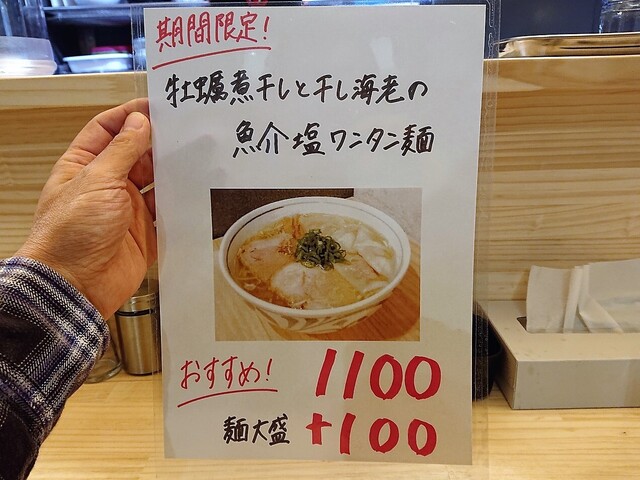 期間限定!
牡蠣煮干しと干し海老の
魚介塩ワンタン麺
おすすめ! 1100
麺大盛 +100